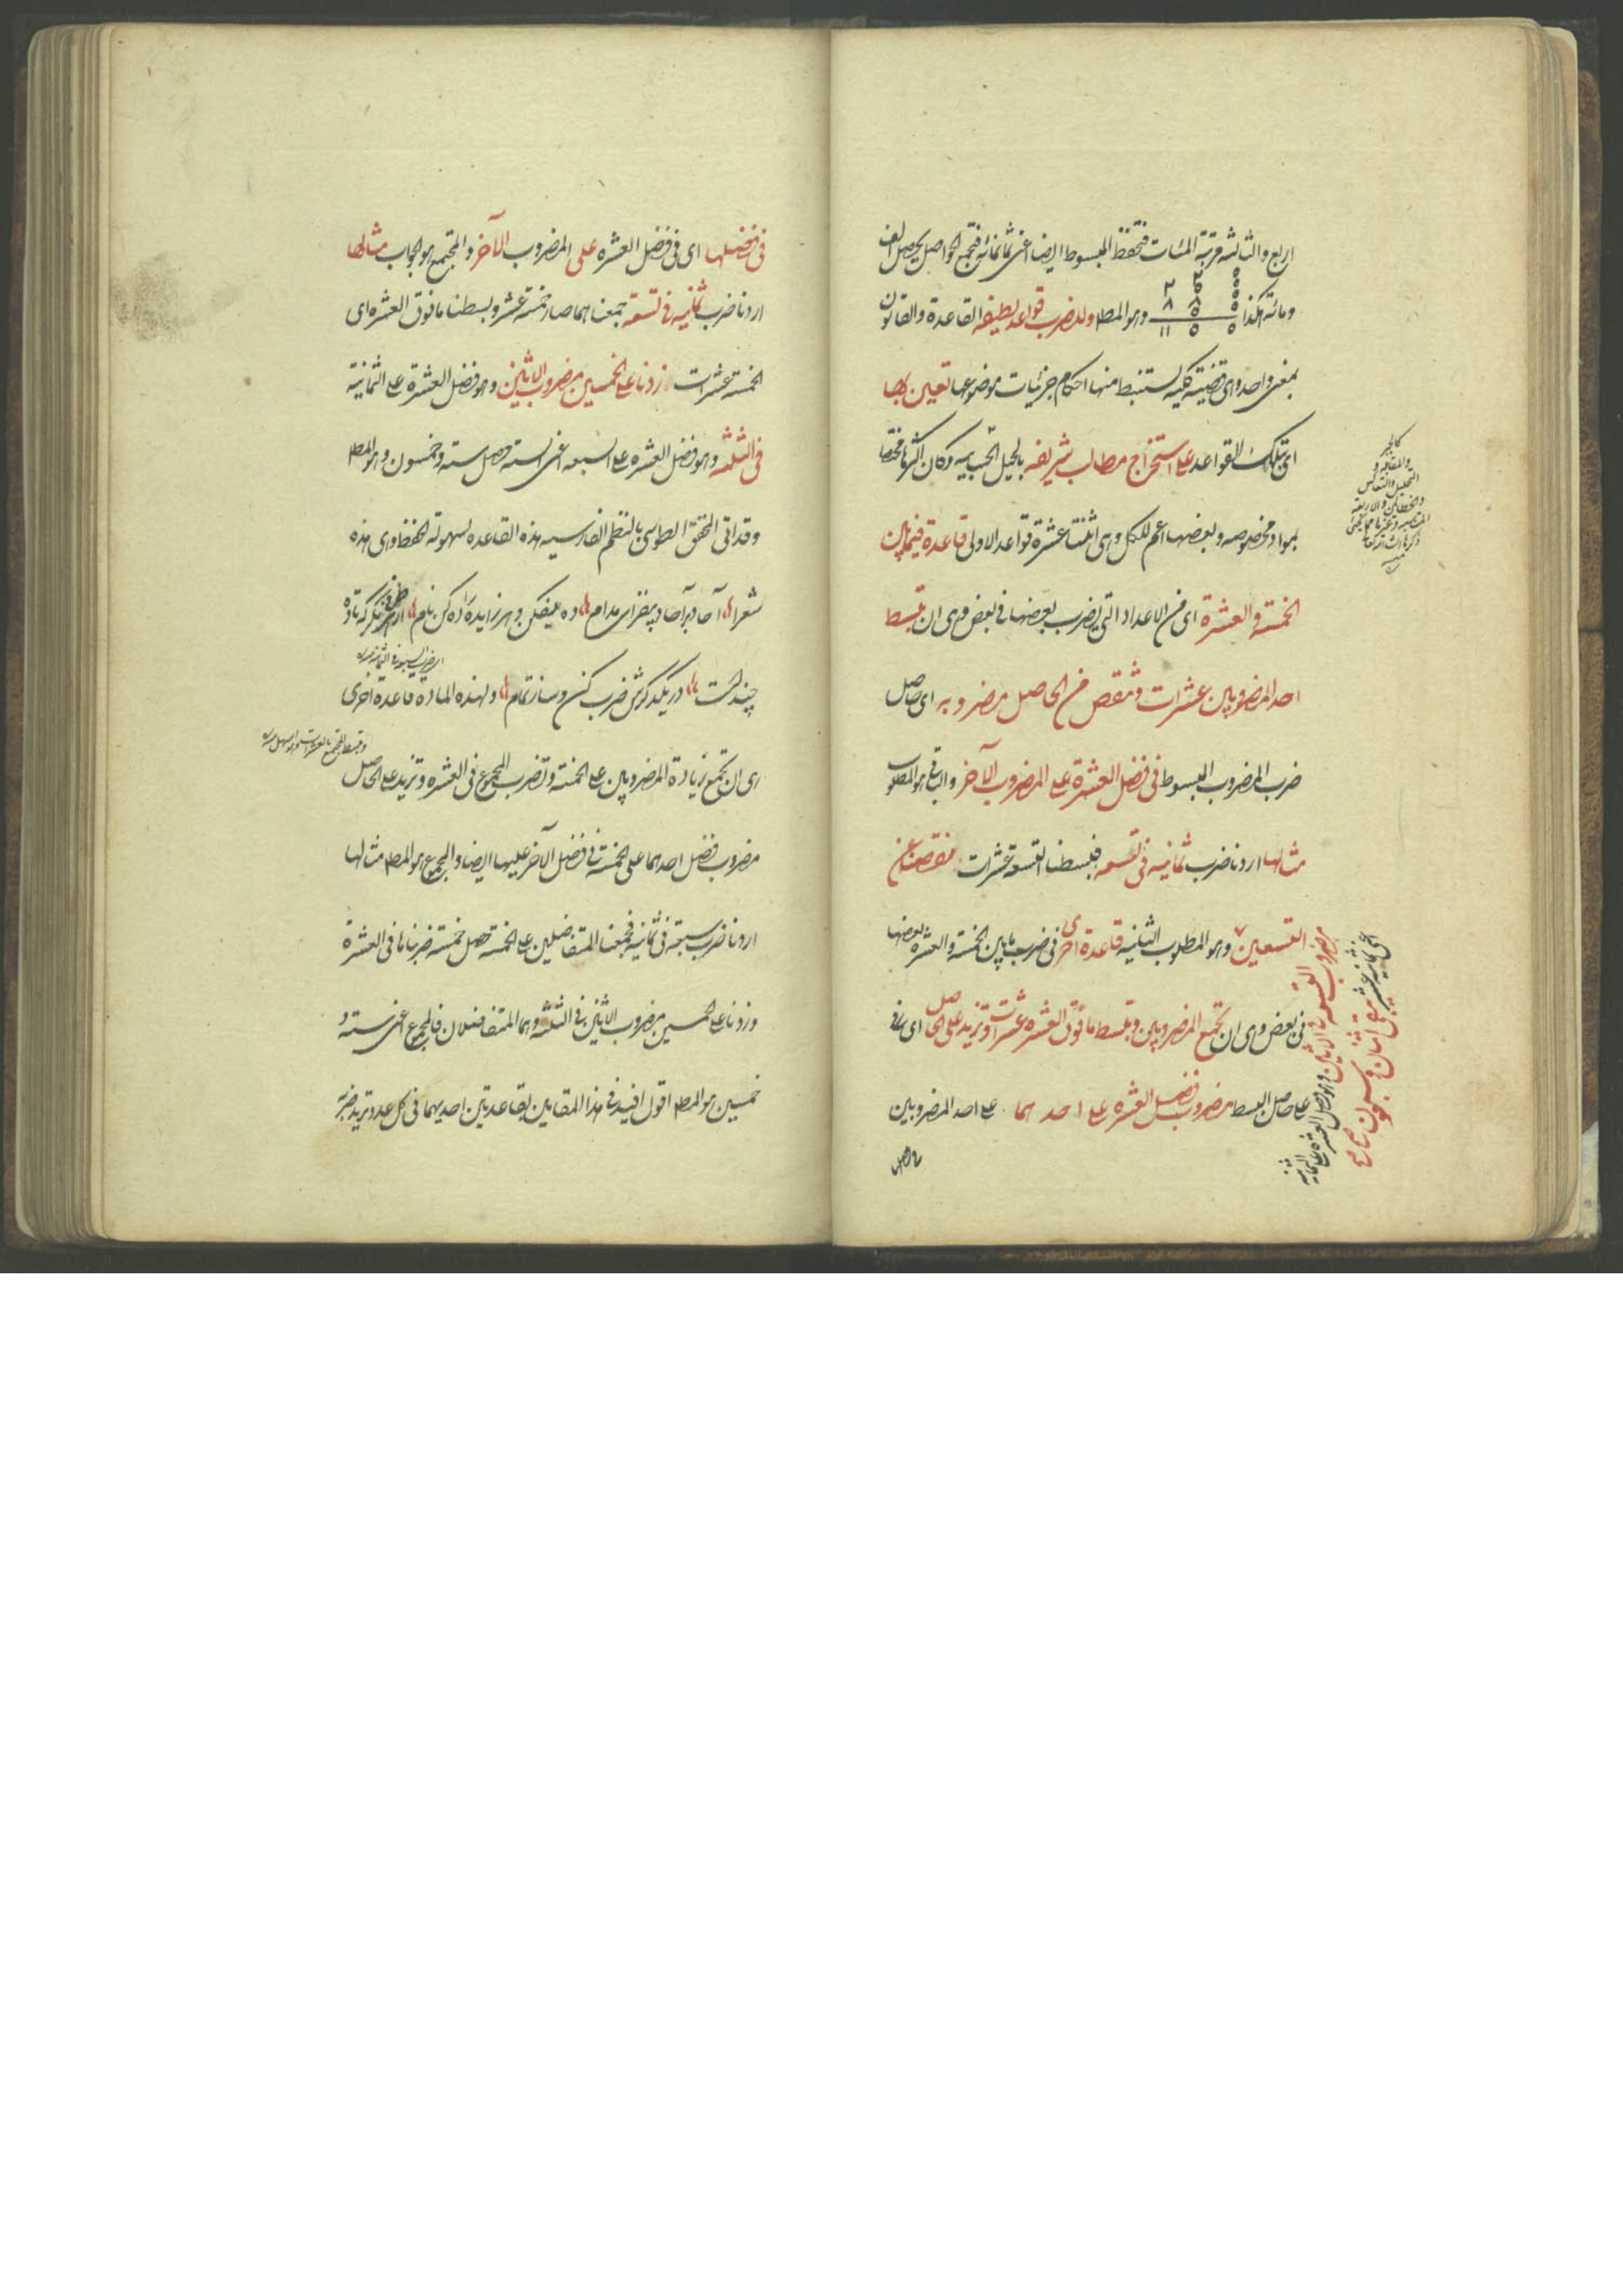 اربع والثالثه مرتبة المئات فتحفظ المبسوط ايضا اعنى ثمانمائة فتجمع الحواصل يحصل الف
ومائة هكذا
وهو المط وللضرب قواعد لطيفه القاعدة والقانون
بمعنى واحد وهى قضية كلية يستنبط منها احكام جزئيات موضوعها تعين بها
اى بتلك القواعد على استخراج مطالب شريفه بالحيل الحسابيه وكان اكثرها مختصا
بمواد مخصوصه وبعضها اعم للكل وهى اثنتا عشرة قواعد الاولى قاعدة فيما بين
الخمسة والعشرة اى من الاعداد التى يضرب بعضها فى بعض وهى ان تبسط
احد المضروبين عشرات وتنقص من الحاصل مضروبه اى حاصل
ضرب المضروب المبسوط فى فضل العشرة على المضروب الآخر والباقى هو المطلوب
مثالها اردنا ضرب ثمانيه فى تسعه فبسطنا التسعه عشرات نقصنا عن
التسعين وهو المطلوب الثانيه قاعدة اخرى فى ضرب ما بين الخمسة والعشره بعضها
فى بعض وهى ان تجمع المضروبين وتبسط ما فوق العشره عشرات وتزيد على الحاصل اى
على حاصل البسط مضروب فضل العشره على احدهما على احد المضروبين
كالجبر
والمقابله و
التحليل والتعاكس
والخطأين والاربعة
المتناسبه وغيرها مما يجئ
ذكرها ان شاء الله تعالى
منه
مضروب التسعه فى الاثنين وهو فضل العشره على الثمانيه
اعنى ثمانيه عشر بقى اثنان وسبعون
فى فضلها اى فى فضل العشره على المضروب الآخر والمجتمع هو الجواب مثالها
اردنا ضرب ثمانيه فى تسعة جمعناهما صار خمسة عشر وبسطنا ما فوق العشره اى
الخمسة عشرات زدنا على الخمسين مضروب الاثنين وهو فضل العشرة على الثمانية
فى الثلثه وهو فضل العشره على السبعه اعنى الستة حصل ستة وخمسون وهو المط
وقد اتى المحقق الطوسى بالنظم الفارسيه هذه القاعده لسهولة الحفظ وهى هذه
شعر آحاد بر آحاد بيفزاى مدام ده بيفكن و هر زايد را ده كن نام از هر طرفى نكر كه تا ده
چندست در يكدكرش ضرب كن و ساز تمام ولهذه المادة قاعدة اخرى
اى ضرب السبعة فى الثمانيه منه
وتبسط المجتمع بالعشرات وهو اسهل منه
اى ان تجمع زيادة المضروبين على الخمسة وتضرب المجموع فى العشره وتزيد على الحاصل
مضروب فضل احدهما على الخمسة فى فضل الآخر عليها ايضا والمجموع هو المط مثالها
اردنا ضرب سبعة فى ثمانية فجمعنا المتفاضلين على الخمسة حصل خمسة ضربناها فى العشرة
وزدنا على الخمسين مضروب الاثنين فى الثلثه وهما المتفاضلان فالمجموع اعنى ستة و
خمسين هو المط اقول افيد فى هذا المقامين بقاعدتين احديهما فى كل عدد تريد ضربه